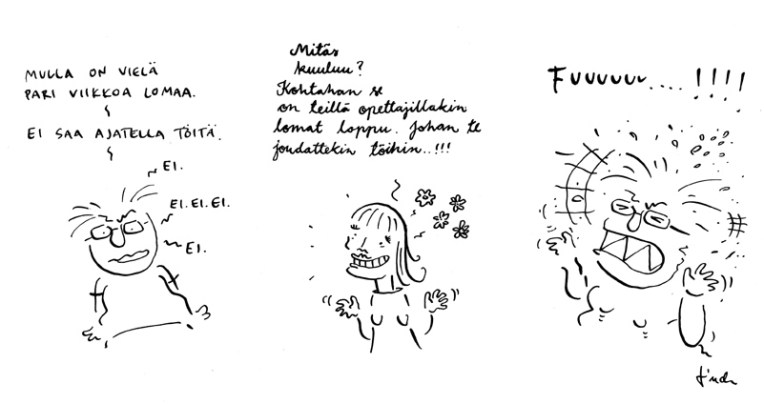 MULLA ON VIELÄ
PARI VIIKKOA LOMAA.
EI SAA AJATELLA TÖITÄ.
EI.
EI.EI.EI.
EI.
Mitäs
kuuluu?
Kohtahan se
on teillä opettajillakin
lomat loppu. Johan te
joudattekin töihin..!!!
FUUUUUU....!!!!